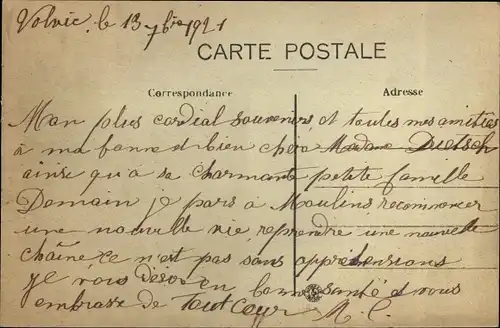 Volvic, le 13 7bre 1921
CARTE POSTALE
Correspondance
Adresse
Mon plus cordial souvenirs, et toutes mes amitiés
à ma bonne et bien chère Madame Dietsch
ainsi qu'a sa charmante petite famille
Demain je pars à Moulins recommencer
une nouvelle vie, reprendre une nouvelle
chaîne ce n'est pas sans appréhensions
Je vous désire en bonne santé et vous
embrasse de tout cœur M. C.